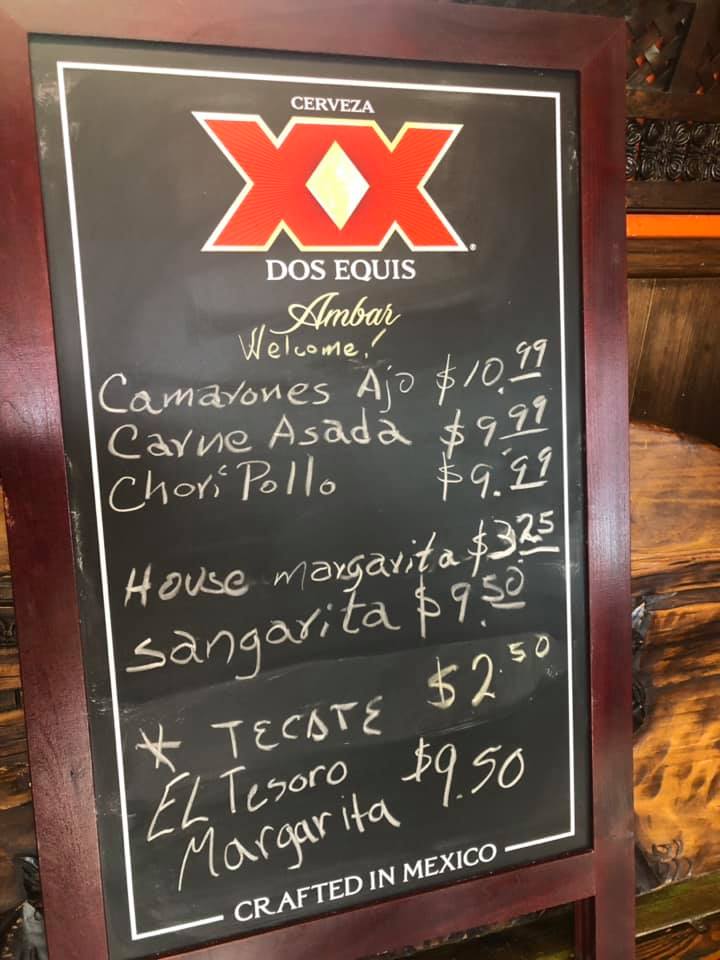 CERVEZA
XX
DOS EQUIS
Ambar
Welcome!
Camarones Ajo $10.99
Carne Asada $9.99
Chori Pollo $9.99
House margarita $3.25
sangarita $9.50
* TECATE $2.50
EL Tesoro $9.50
Margarita
CRAFTED IN MEXICO